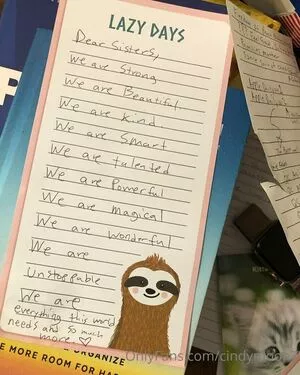 LAZY DAYS
Dear Sisters,
We are Strong
We are Beautiful
We are kind
We are Smart
We are talented
We are Powerful
We are magical
We are wonderful
We are
Unstoppable
We are
everything this world
needs and so much
more ♡
& ORGANIZE
E MORE ROOM FOR HA
OnlyFans.com/cindy